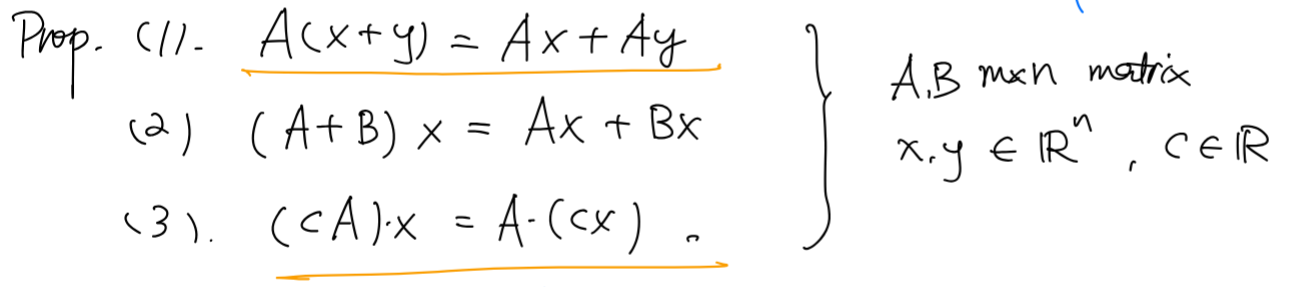 Prop. (1). A(x+y) = Ax + Ay
(2) (A+B) x = Ax + Bx
(3). (cA)·x = A·(cx).
A,B m×n matrix
x,y ∈ ℝⁿ, c∈ℝ